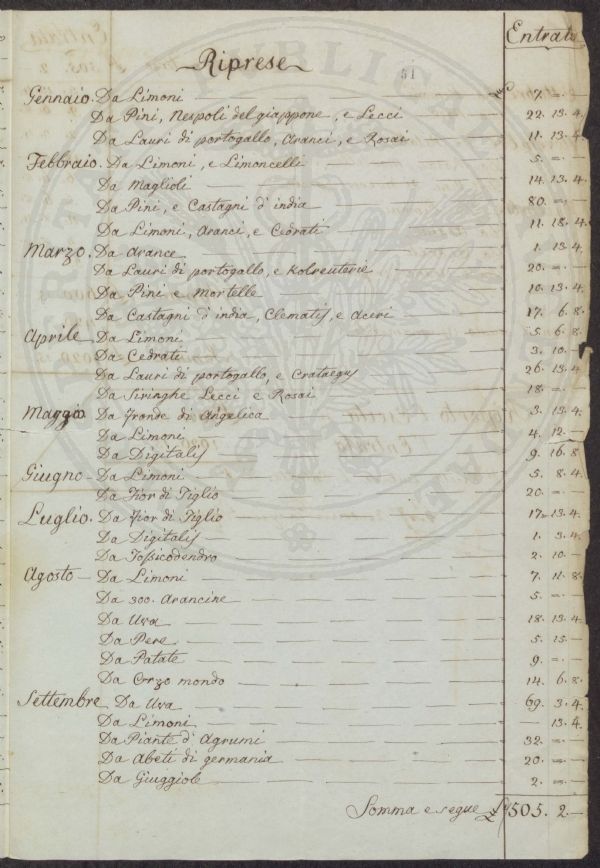 51
Entrata
Riprese
Gennaio. Da Limoni 7. —
Da Pini, Nespoli del giappone, e Lecci 22. 13. 4.
Da Lauri di portogallo, Aranci, e Rosai 11. 13. 4.
Febbraio. Da Limoni, e Limoncelli 5. = . —
Da Maglioli 14. 13. 4.
Da Pini, e Castagni d' india 80. = . —
Da Limoni, Aranci, e Cedrati 11. 18. 4.
Marzo. Da Arance 1. 13. 4.
Da Lauri di portogallo, e Kolreuterie 20. = . —
Da Pini e Mortelle 10. 13. 4.
Da Castagni d' india, Clematis, e Aceri 17. 6. 8.
Aprile Da Limoni 5. 6. 8.
Da Cedrati 3. 10. —
Da Lauri di portogallo, e Crataegus 26. 13. 4
Da Siringhe Lecci e Rosai 18. = . —
Maggio Da Fronde di Angelica 3. 13. 4.
Da Limoni 4. 12. —
Da Digitalis 9. 16. 8
Giugno - Da Limoni 5. 8. 4
Da Fior di Tiglio 20. = . —
Luglio. Da Fior di Tiglio 17. 13. 4.
Da Digitalis 1. 3. 4.
Da Tossicodendro 2. 10. —
Agosto - Da Limoni 7. 11. 8.
Da 300. Arancine 5. = . —
Da Uva 18. 13. 4
Da Pere 5. 15. —
Da Patate 9. = . —
Da Orzo mondo 14. 6. 8.
Settembre Da Uva 69. 3. 4.
Da Limoni — 13. 4.
Da Piante d' Agrumi 32. = . —
Da Abeti di germania 20. = . —
Da Giuggiole 2. = . —
Somma e segue 505. 2 —